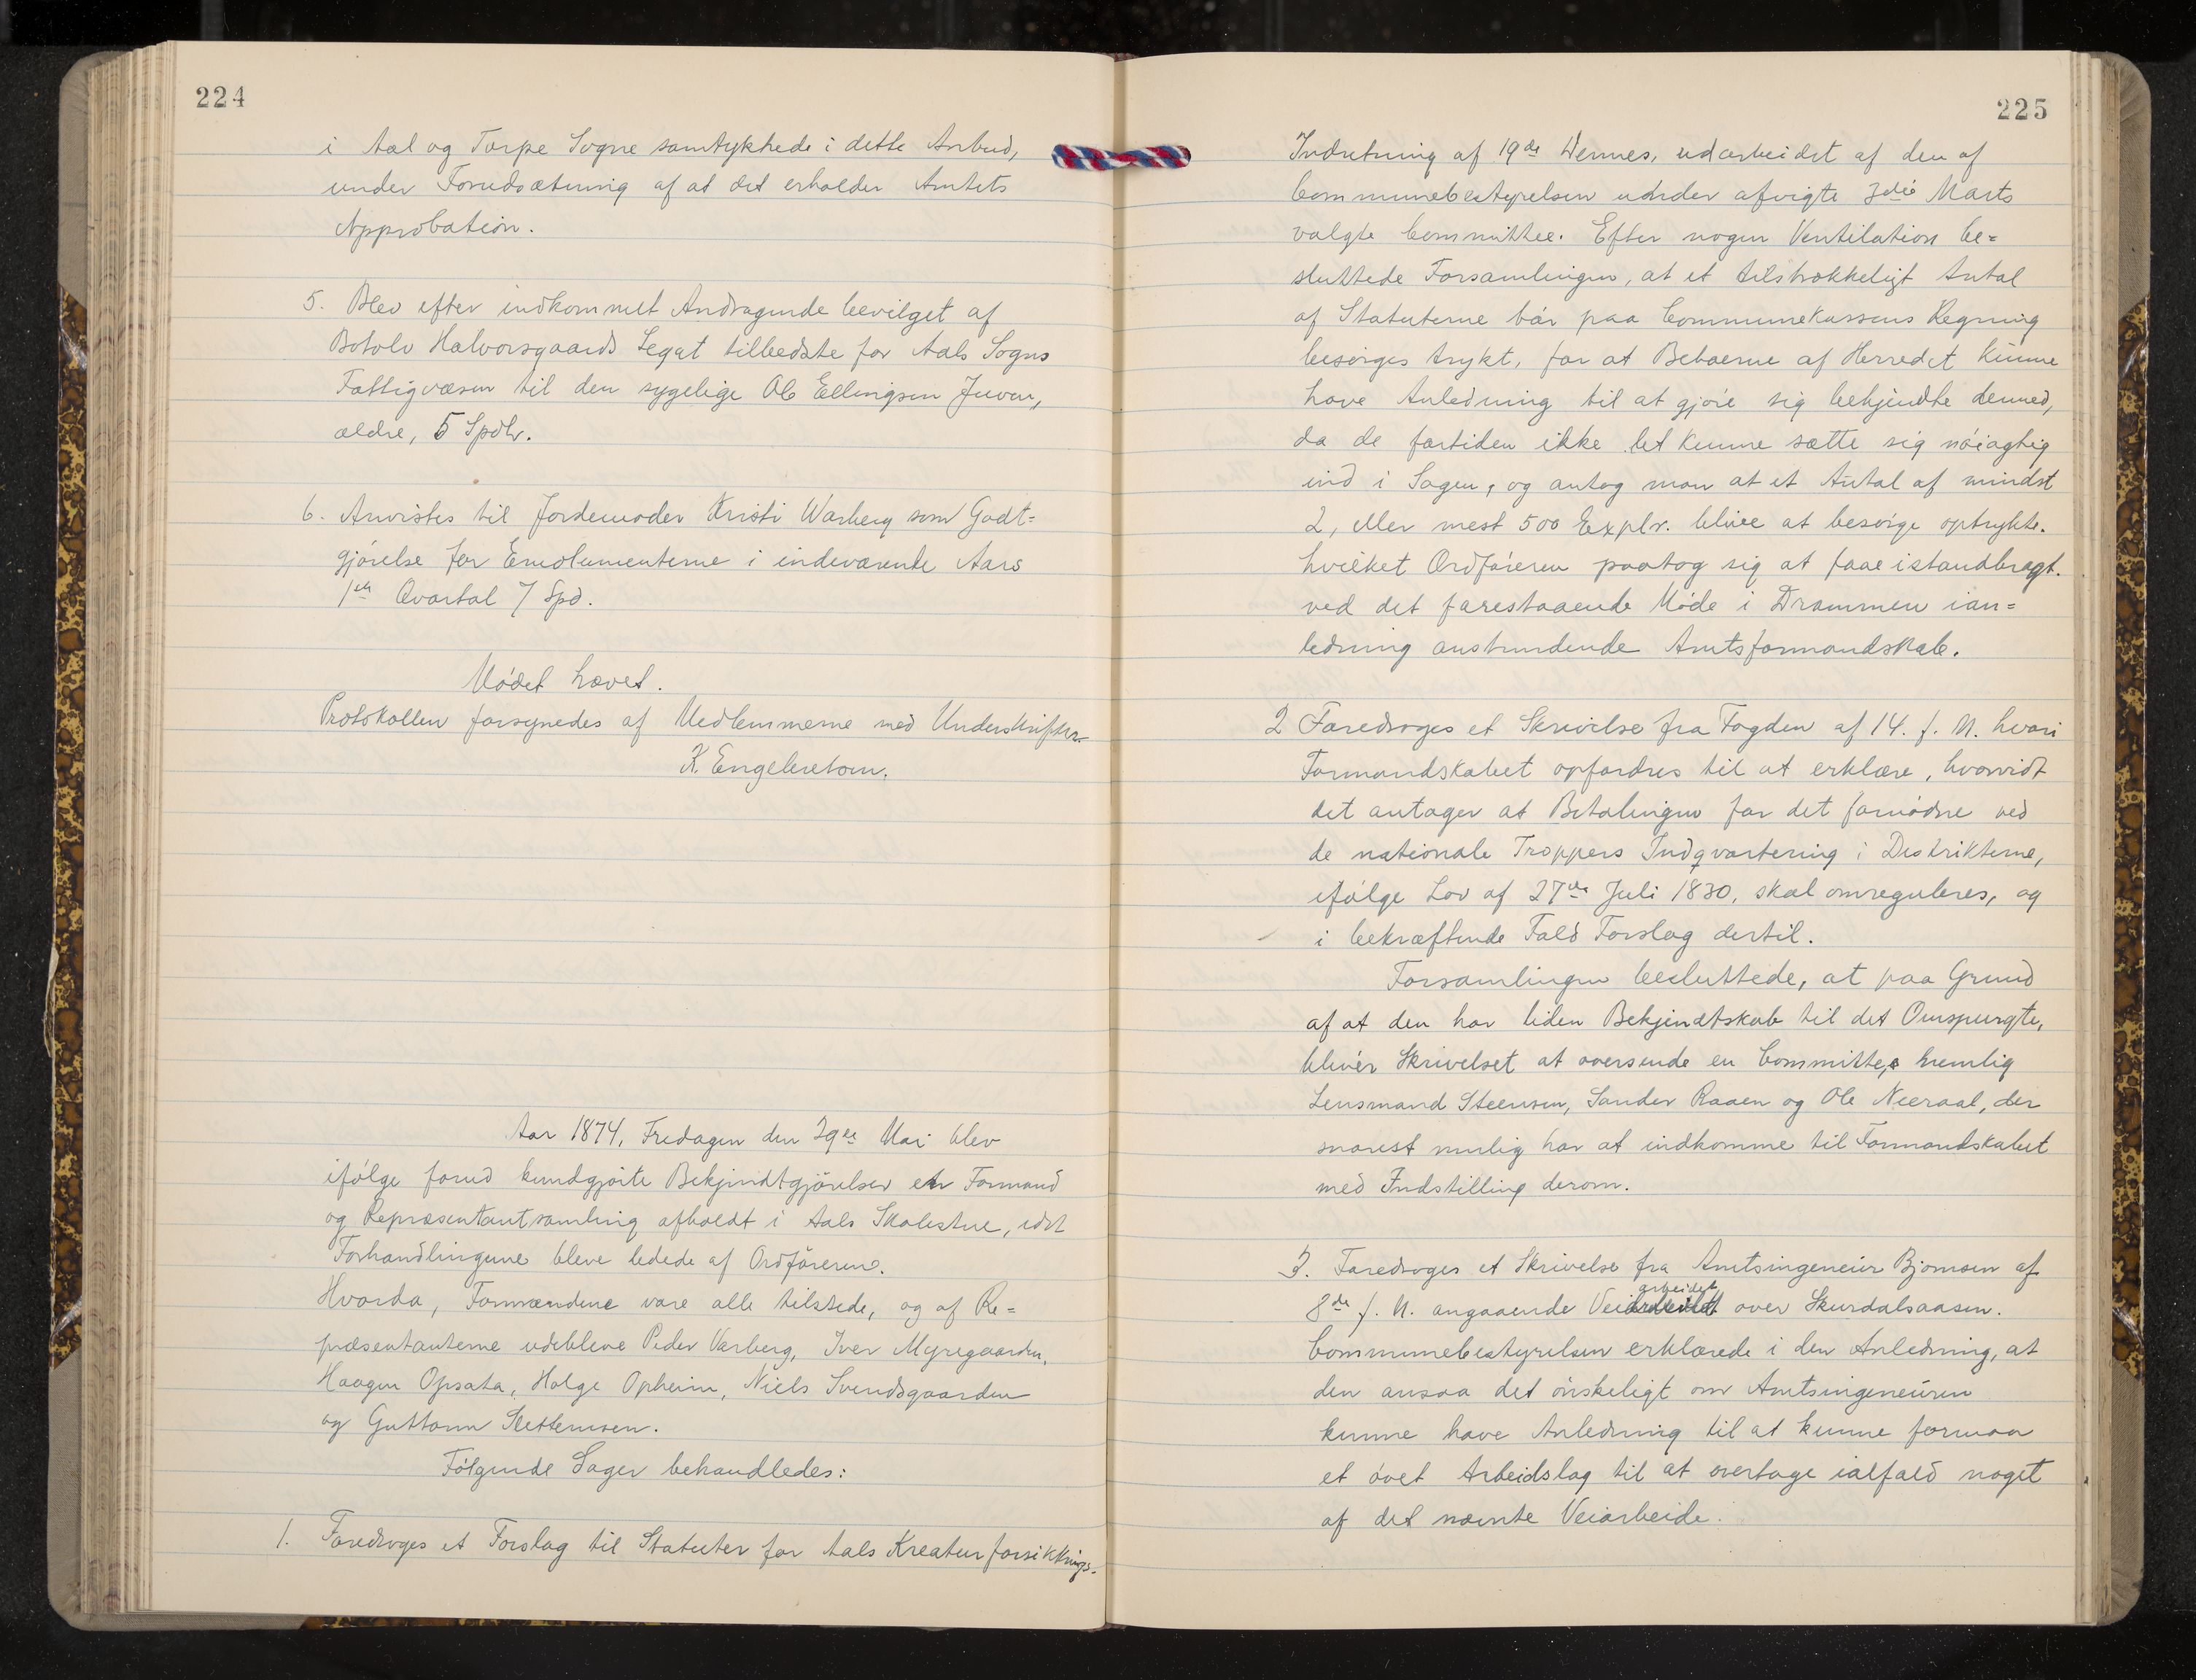 224
i Aal og Torpe Sogne samtykkede i dette Anbud,
under Forudsætning af at det erholder Amtets
Approbation.
5. Blev efter indkommet Andragende bevilget af
Botolv Halvorsgaards Legat tilbedste for Aals Sogns
Fattigvæsen til den sygelige Ole Ellingsen Juven,
ældre, 5 Spdlr.
6. Anvistes til Jordemoder Kristi Warberg som Godt=
gjørelse for Emolumenterne i indeværende Aars
1ste Qvartal 7 Spd.
Mødet hævet.
Protokollen forsynedes af Medlemmerne med Underskrifter.
K. Engebretsen.
Aar 1874, Fredagen den 29de Mai blev
ifølge forud kundgjorte Bekjendtgjørelser en Formand
og Repræsentantsamling afholdt i Aals Skolestue, idet
Forhandlingerne bleve ledede af Ordføreren.
Hvorda, Formændene vare alle tilstede, og af Re=
præsentanterne udebleve Peder Varberg, Iver Myregaarden,
Haagen Opsata, Holge Opheim, Niels Svendsgaarden
og Guttorm Slettemoen.
Følgende Sager behandledes:
1. Foredroges et Forslag til Statuter for Aals Kreaturforsikkrings-
225
Indretning af 19de Dennes, udarbeidet af den af
Communebestyrelsen under afvigte 3die Marts
valgte Committee. Efter nogen Ventilation be=
sluttede Forsamlingen, at et tilstrækkeligt Antal
af Statuterne bør paa Communekassens Regning
besørges trykt, for at Beboerne af Herredet kunne
have Anledning til at gjøre sig bekjendte dermed,
da de fortiden ikke let kunne sætte sig nøiagtig
ind i Sagen, og antog man at et Antal af mindst
2, eller mest 500 Explr. blive at besørge optrykte.
hvilket Ordføreren paatog sig at faae istandbragt.
ved det forestaaende Møde i Drammen ian=
ledning anstundende Amtsformandskab.
2 Foredroges et Skrivelse fra Fogden af 14. f. M. hvori
Formandskabet opfordres til at erklære, hvorvidt
det antager at Betalingen for det fornødne ved
de nationale Troppers Indqvartering i Distrikterne,
ifølge Lov af 27de Juli 1830, skal omreguleres, og
i bekræftende Fald Forslag dertil.
Forsamlingen besluttede, at paa Grund
af at den har liden Bekjendtskab til det Omspurgte,
bliver Skrivelset at oversende en Committee, nemlig
Lensmand Steensen, Sander Raaen og Ole Neeraal, der
snarest mulig har at indkomme til Formandskabet
med Indstilling derom.
3. Foredroges et Skrivelse fra Amtsingeneiur Bjornsen af
8de f. M. angaaende Veiarbeidet over Skurdalsaasen.
Communebestyrelsen erklærede i den Anledning, at
den ansaa det ønskeligt om Amtsingeneuren
kunne have Anledning til at kunne formaa
et øvet Arbeidslag til at overtage ialfald noget
af det nævnte Veiarbeide.